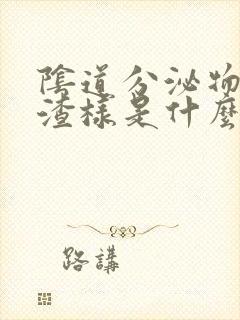 陰道分泌物
渣樣是什麼
路講